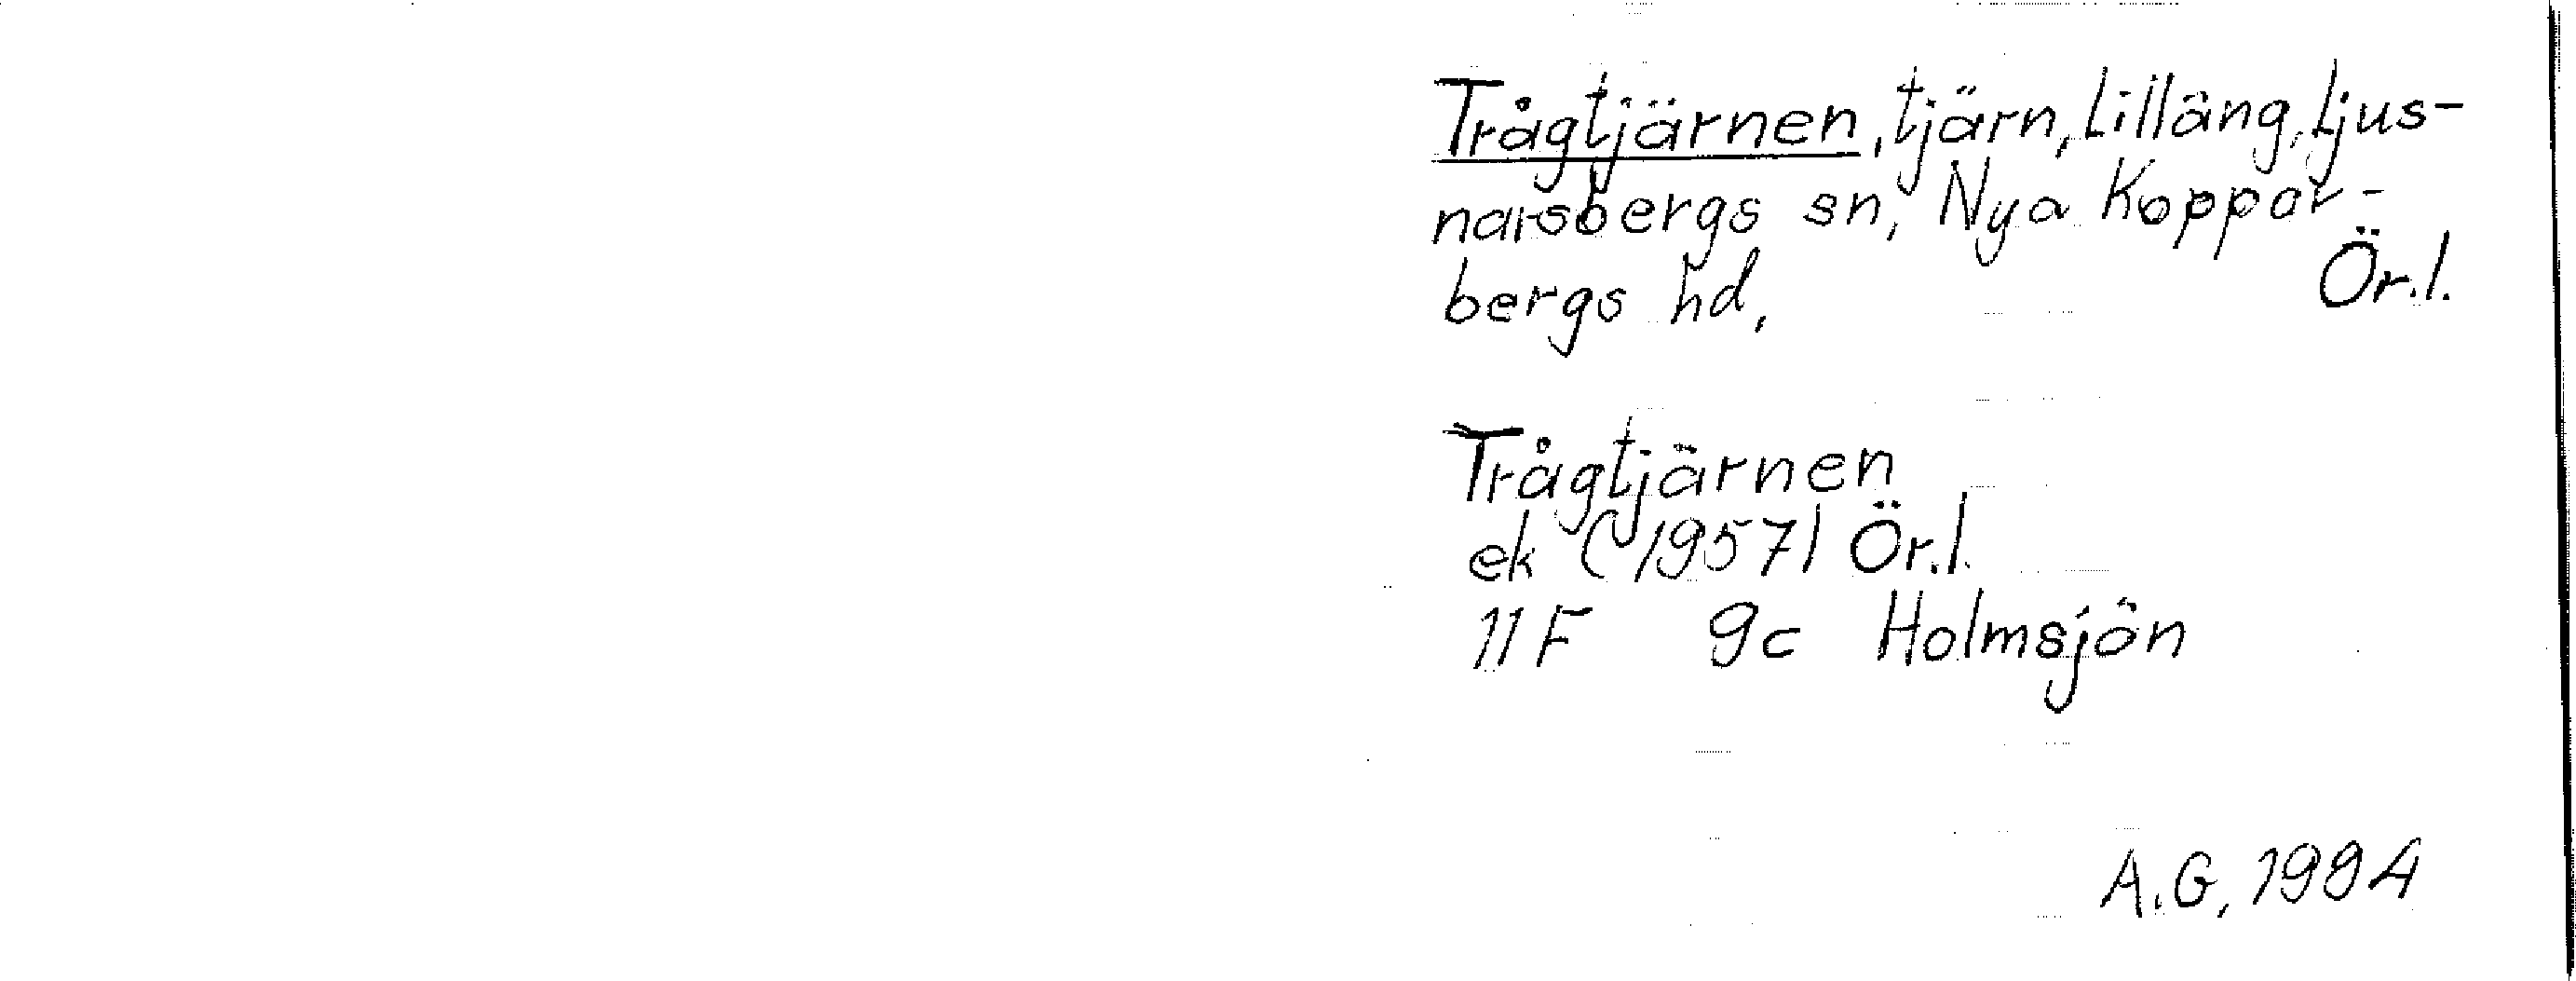 Trågtjärnen, tjärn, Lilläng, Ljus-
narsbergs sn, Nya Koppar-
bergs hd, Ör.l.
Trågtjärnen
ek (1957) Ör.l.
11F 9c Holmsjön
A.G, 1994